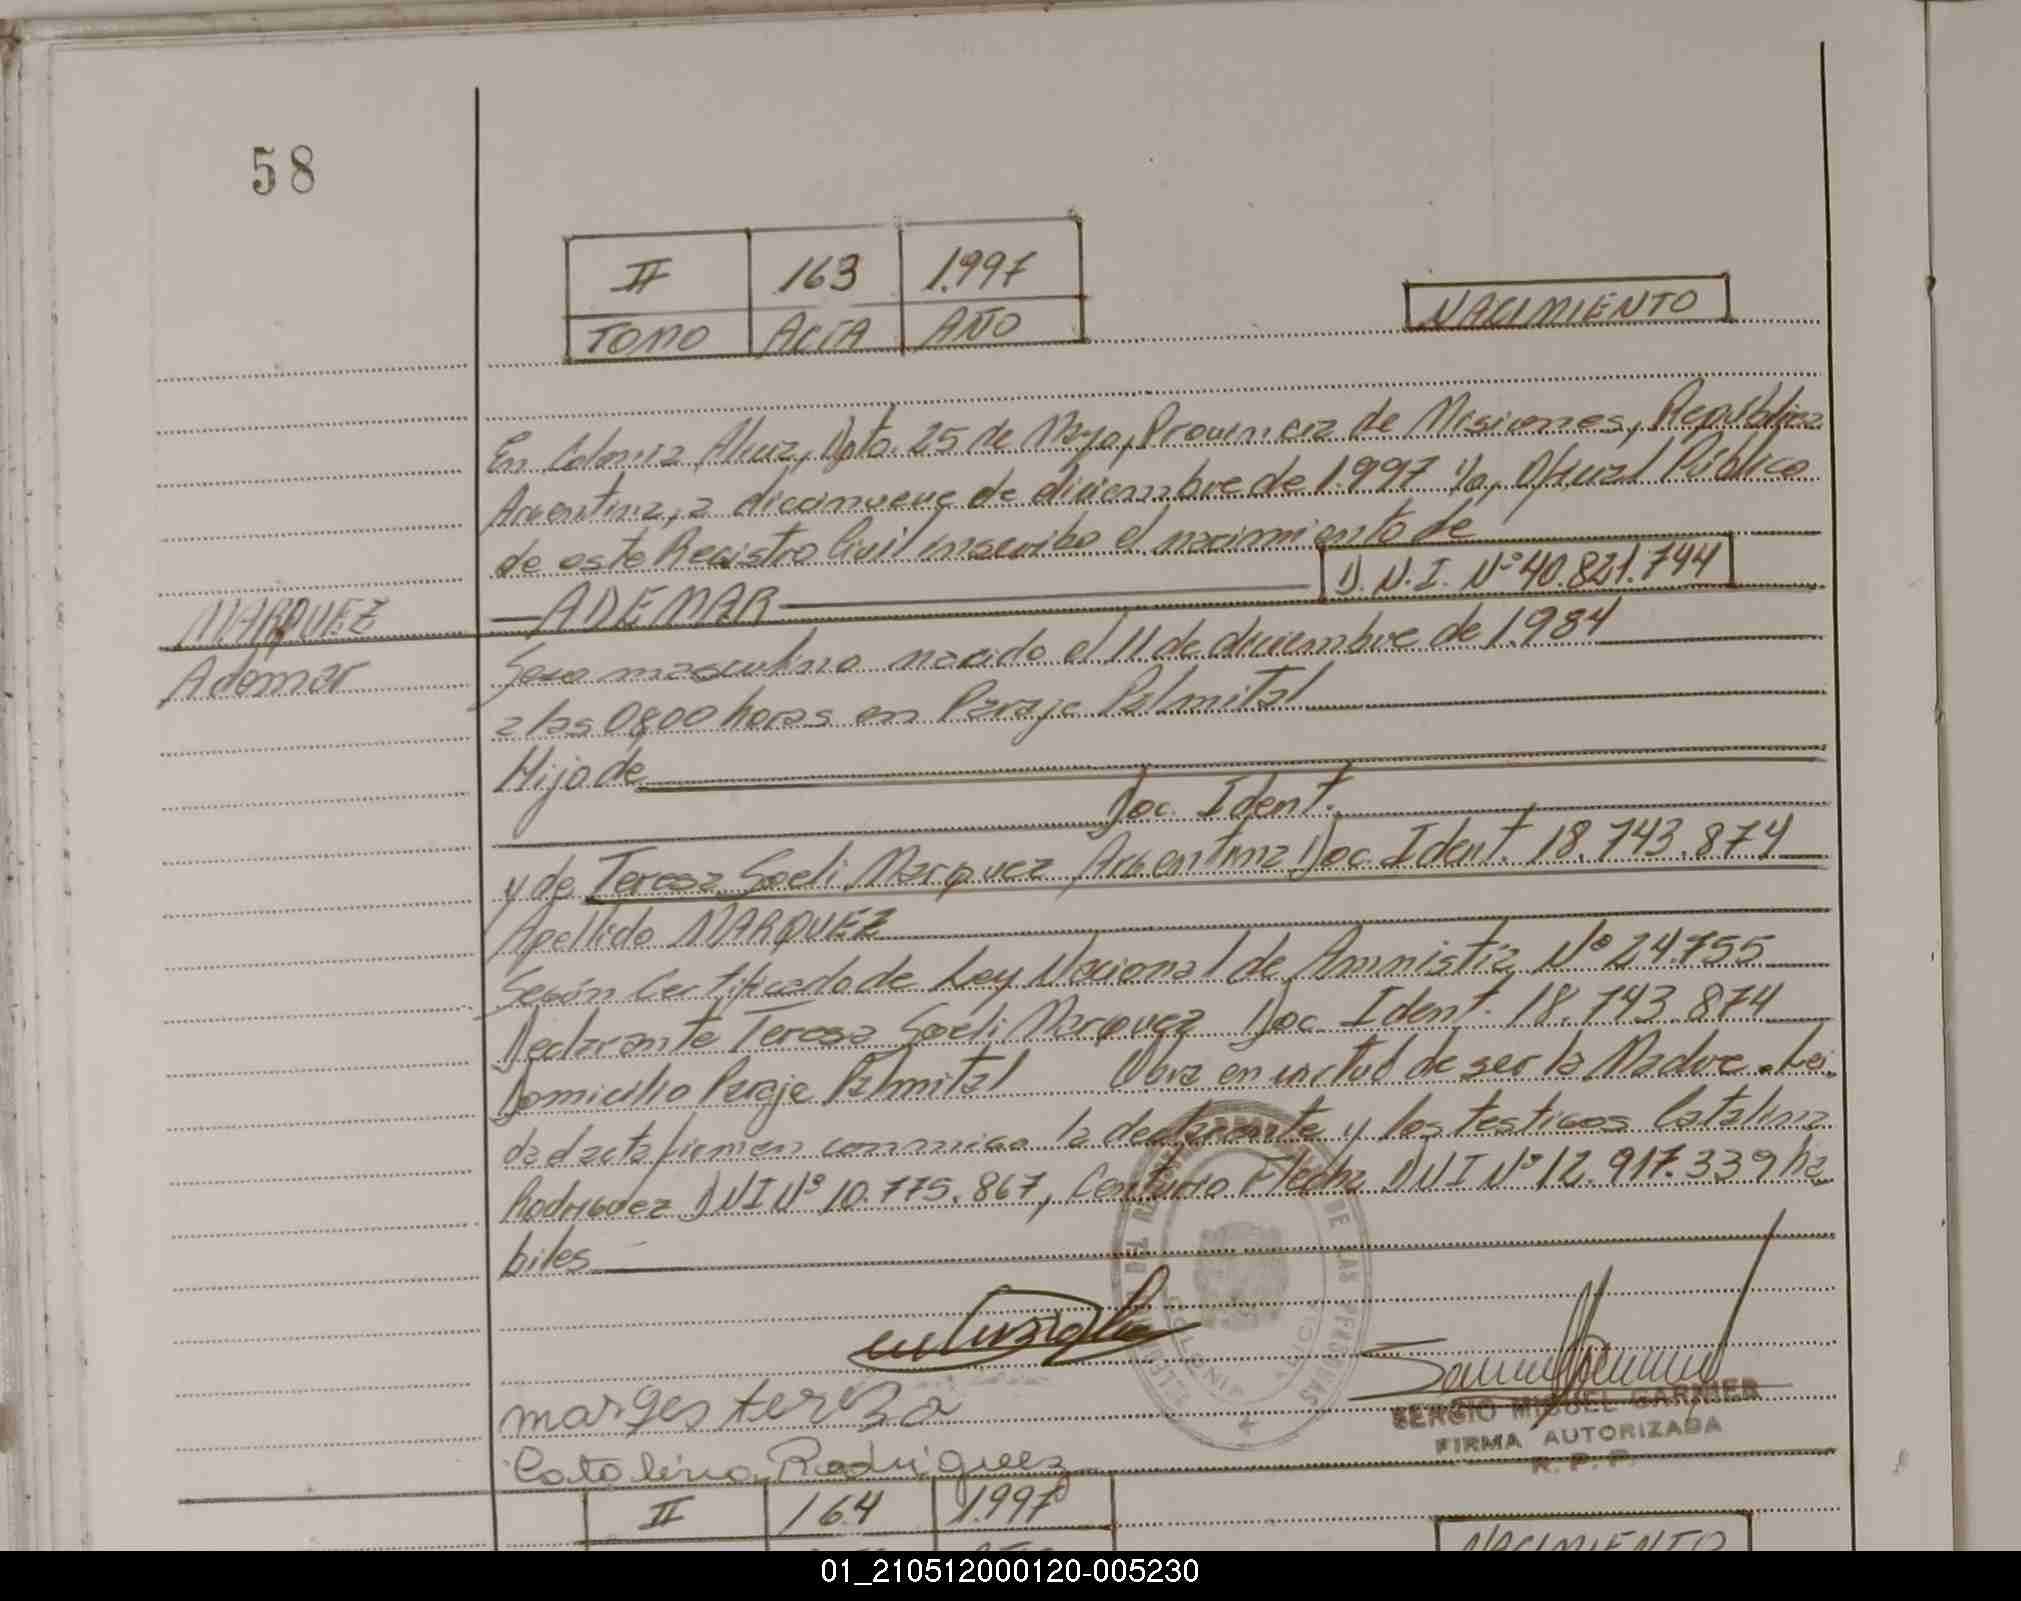 58
II 163 1.997
TOMO ACTA AÑO
NACIMIENTO
En Colonia Alicia, Dpto. 25 de Mayo, Provincia de Misiones, República
Argentina, a diecinueve de diciembre de 1.997 Yo, Oficial Público
de este Registro Civil inscribo el nacimiento de
D.N.I. Nº 40.821.744
MARQUEZ
ADEMAR
Ademar
Sexo masculino nacido el 11 de diciembre de 1.984
a las 0800 horas en Paraje Palmital
Hijo de
Doc. Ident.
y de Teresa Soeli Marquez Argentina Doc. Ident. 18.743.874
Apellido MARQUEZ
Según Certificado de Ley Nacional de Amnistía Nº 24.755
Declarante Teresa Soeli Marquez Doc. Ident. 18.743.874
Domicilio Paraje Palmital Obra en virtud de ser la Madre. Leí
da el acta firman conmigo la declarante y los testigos Catalina
Rodriguez DNI Nº 10.775.867, Centurio Flecha DNI Nº 12.917.339 há
biles
DE LAS PERSONAS
COLONIA ALICIA
SERGIO MIGUEL GARNIER
FIRMA AUTORIZADA
R.P.P.
marges terza
Catalina Rodriguez
II 164 1.997
NACIMIENTO
01_210512000120-005230